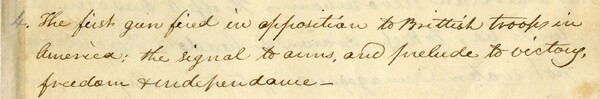 4. The first gun fired in opposition to Brittish troops in
America; the signal to arms, and prelude to victory,
freedom & independance —